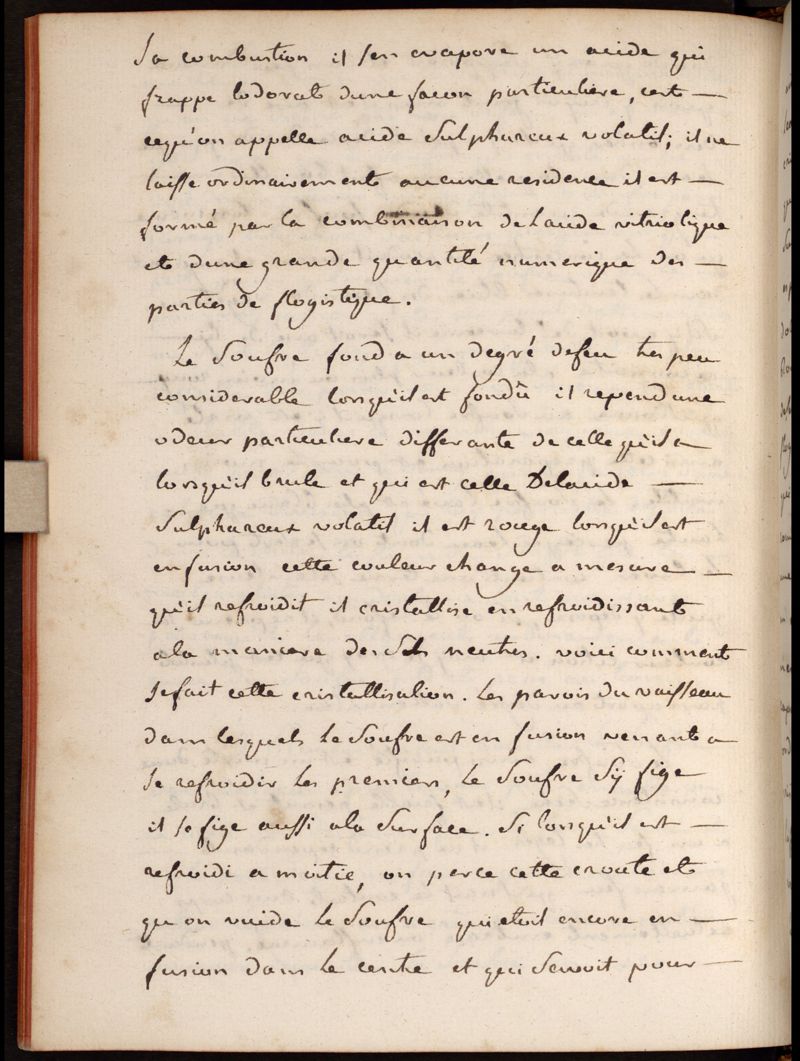 Sa combustion il s'en evapore un acide qui
frappe lodorat dune facon particuliere, cest —
cequ'on appelle acide Sulphureux volatil; il ne
laisse ordinairement aucune residence il est —
formé par la combinaison de Lacide vitriolique
et dune grande quantité numerique des —
parties de flogistique.
Le Soufre fond a un degré defeu tres peu
considerable lorsqu'il est fondu il repend une
odeur particuliere differante de celle qu'il a
lorsqu'il brule et qui est celle Delacide —
Sulphureux volatil il est rouge lorsqu'il est
en fusion cette couleur change a mesure —
qu'il refroidit il cristallise en refroidissant
ala maniere des Sels neutres. voici comment
se fait cette cristallisation. Les parois du vaisseau
dans lesquels le Soufre est en fusion venant a
se refroidir les premiers, le Soufre s'y fige
il se fige aussi ala Surface. Si lorsqu'il est —
refroidi a moitié, on perce cette croute et
qu on vuide le Soufre qui etoit encore en —
fusion dans le centre et qui Servoit pour —